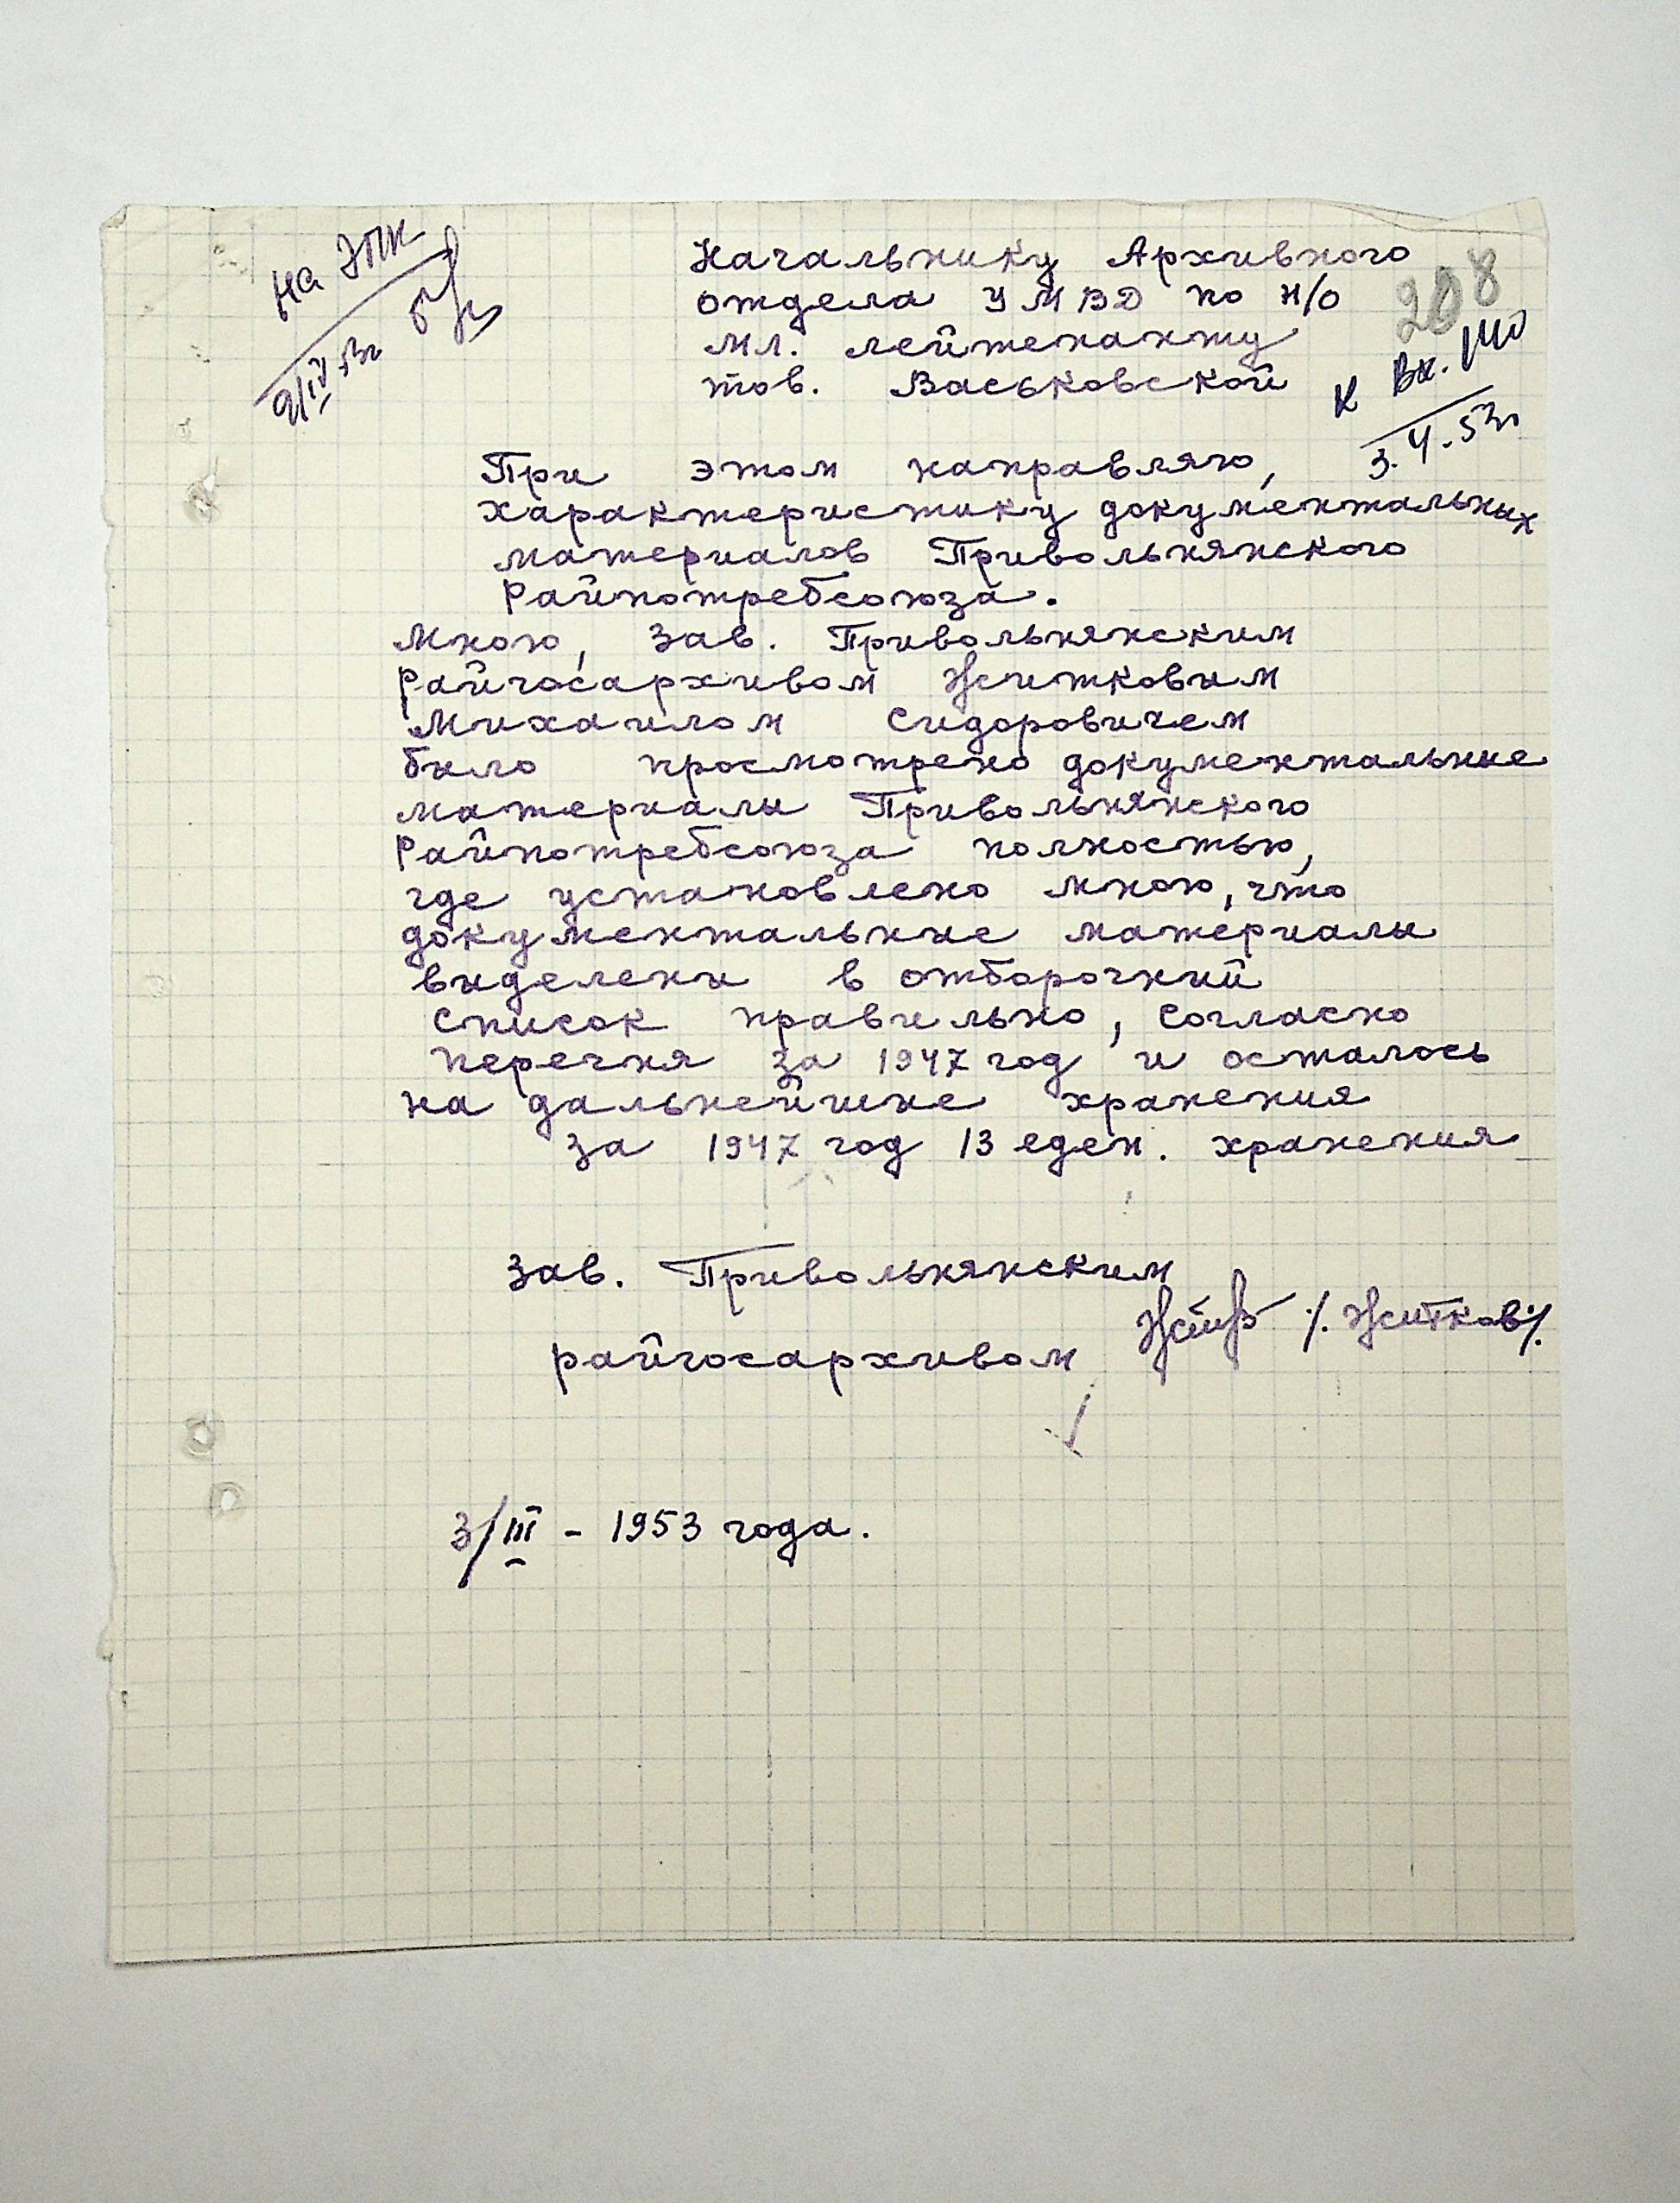 на ЭПК
9/IV 53г
Начальнику Архивного
отдела УМВД по Н/О
мл. лейтенанту
тов. Васьковской
208
к Вх. 1110
3.4.53г
При этом направляю,
характеристику документальных
материалов Привольнянского
Райпотребсоюза.
Мною, Зав. Привольнянским
райгосархивом Житковым
Михаилом Сидоровичем
было просмотрено документальные
материалы Привольнянского
Райпотребсоюза полностью,
где установлено мною, что
документальные материалы
выделены в отборочный
список правильно, согласно
перечня за 1947 год и осталось
на дальнейшие хранения
за 1947 год 13 еден. хранения
Зав. Привольнянским
райгосархивом /. Житков /.
3/III - 1953 года.